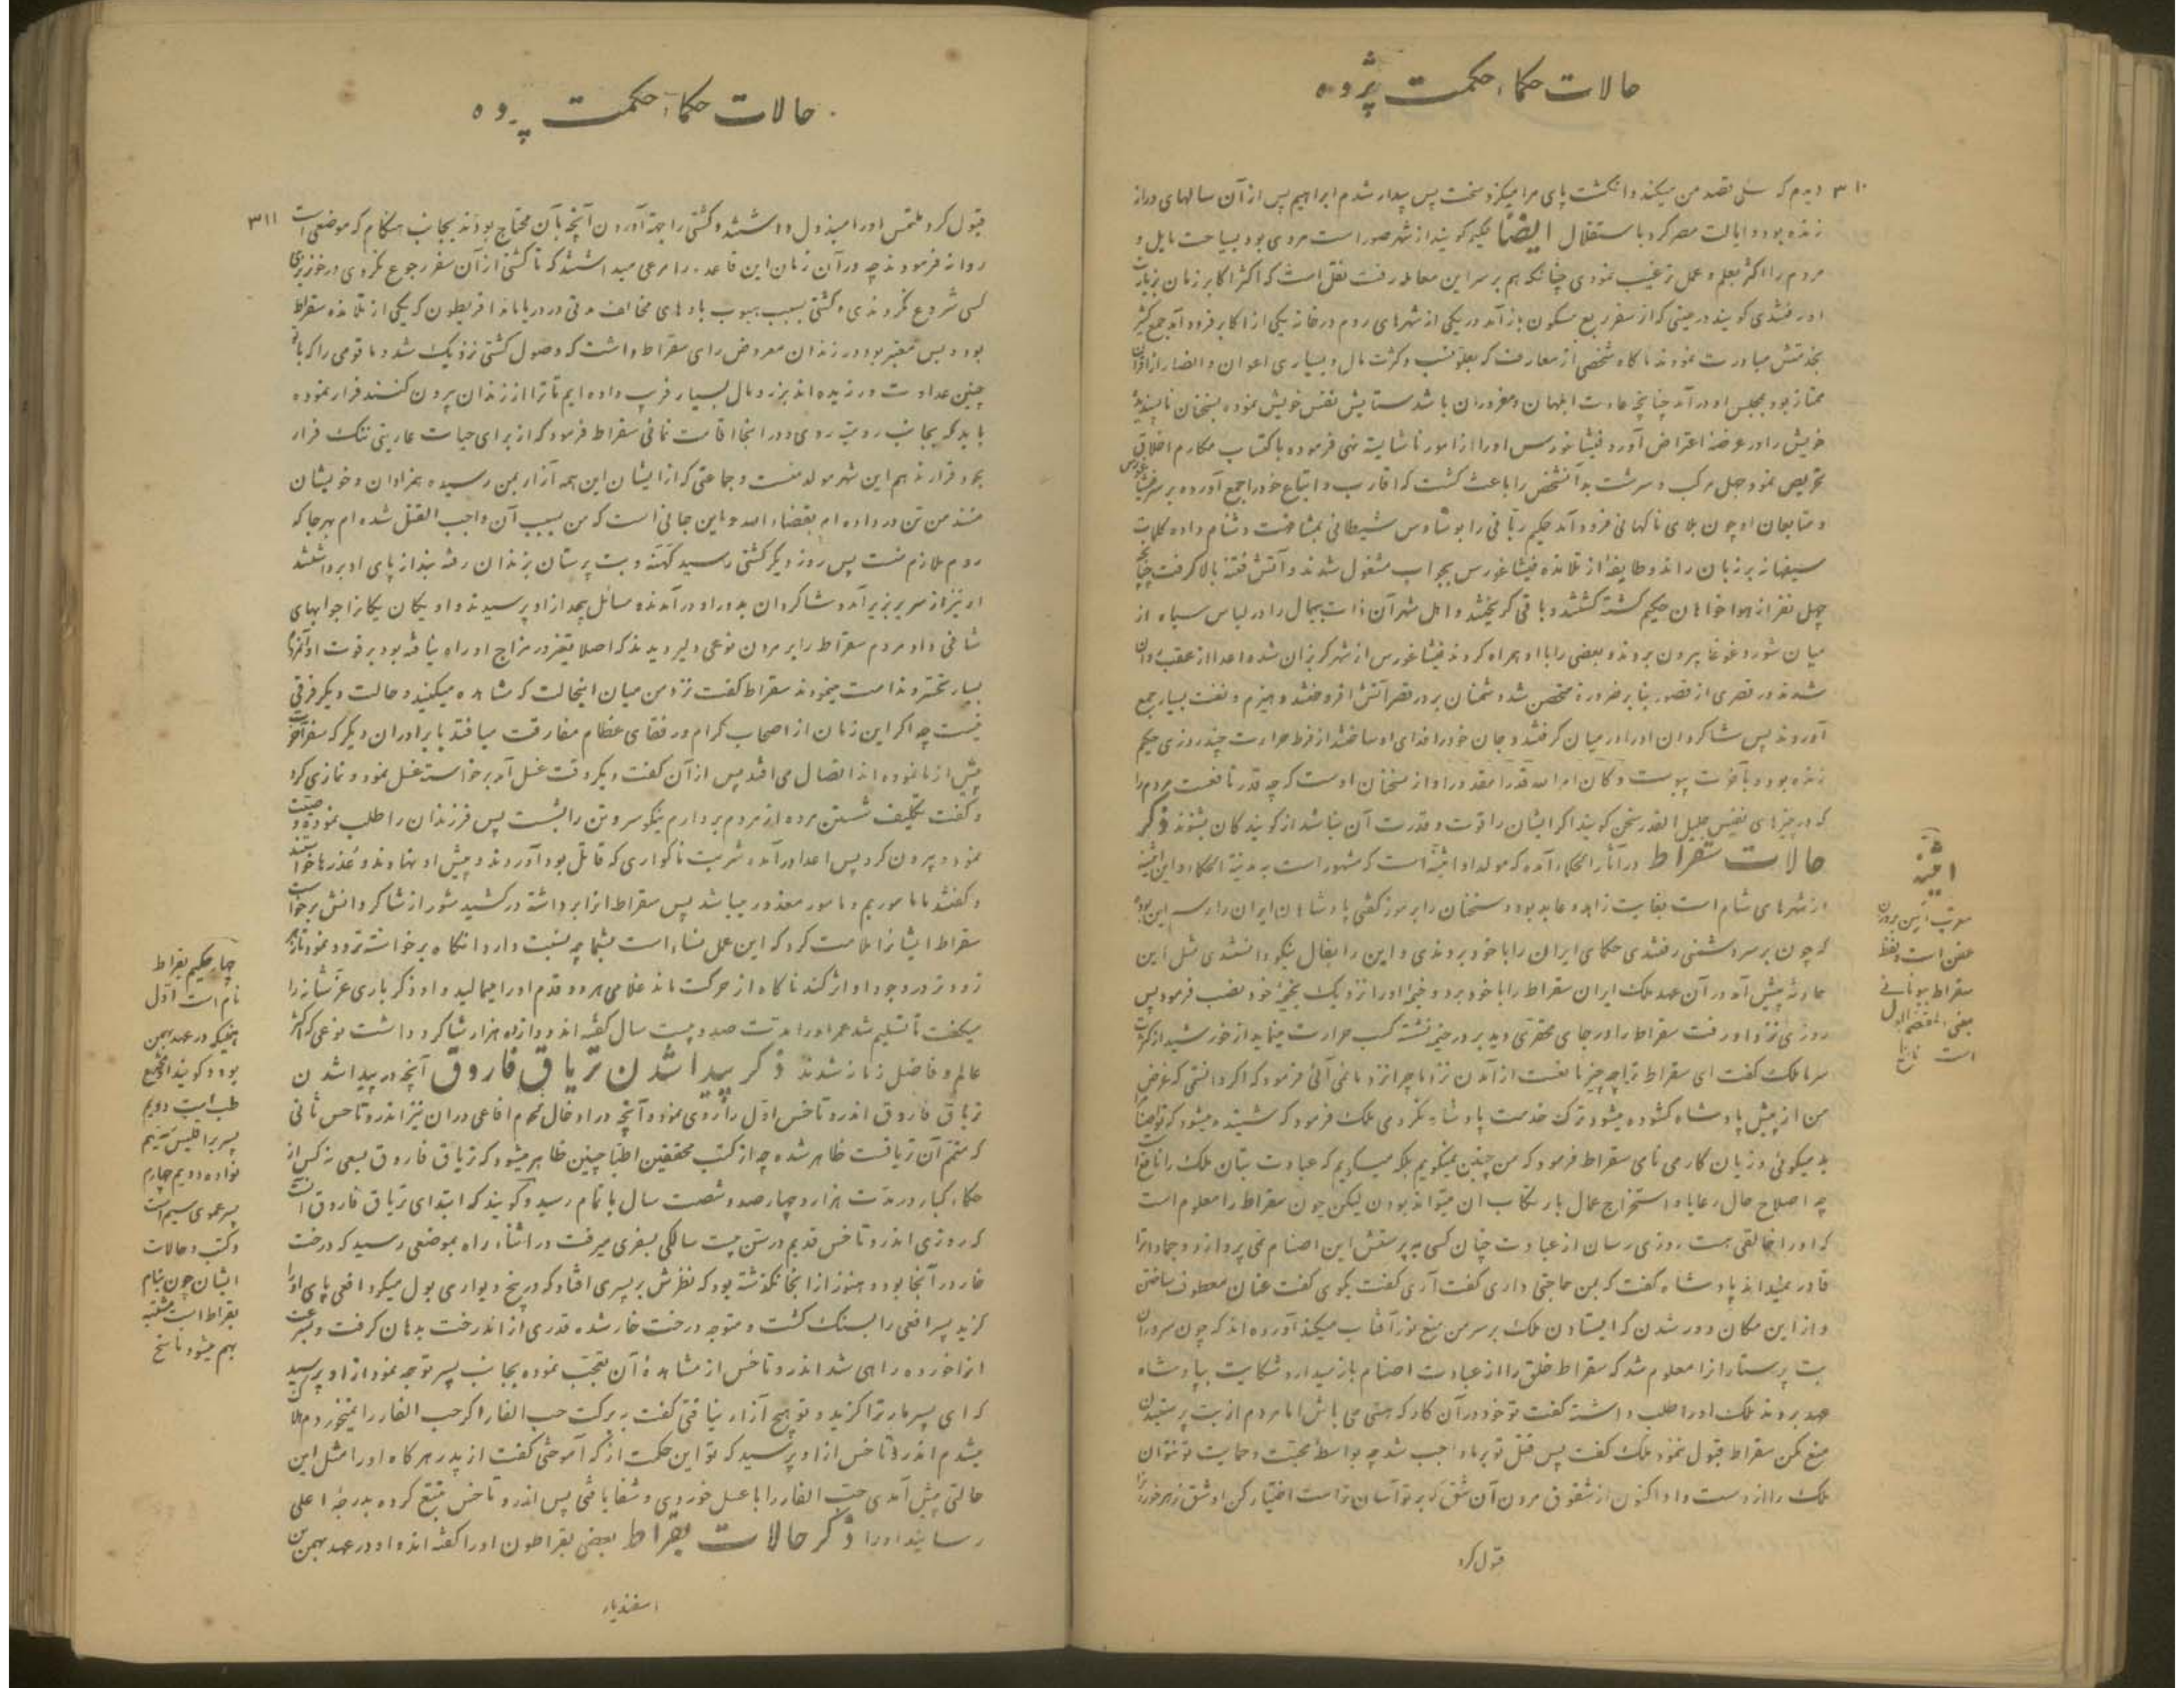 حالات حکماء حکمت پژوه
۳۱۰
دیدم که سگی قصد من میکند و انگشت پای مرا میگزد سخت پس بیدار شدم ابراهیم پس از آن سالهای دراز
زنده بود و ایالت مصر کرد باستقلال ایضاً حکیم گویند از شهر صور است مردی بود بسیاحت مایل و
مردم را اکثر بعلم و عمل ترغیب نمودی چنانکه هم بر سر این معامله رفت نقل است که اکثر اکابر زمان بزیارت
او رفتندی گویند در حینی که از سفر ربع مسکون باز آمد در یکی از شهرهای روم در خانه یکی از اکابر فرود آمد جمع کثیر
بخدمتش مبادرت نمودند ناگاه شخصی از معارف که بعلو نسب و کثرت مال و بسیاری اعوان و انصار از اقران
ممتاز بود بمجلس او درآمد چنانچه عادت ابلهان و مغروران باشد ستایش نفس خویش نموده بسخنان ناپسندیده
خویش را در عرضه اعتراض آورد فیثاغورس او را از امور ناشایسته نهی فرموده باکتساب مکارم اخلاق
تحریص نمود جهل مرکب و سرشت بد آنشخص را باعث گشت که اقارب و اتباع خود را جمع آورده بر سر فیثاغورس
و متابعان او چون بلای ناگهانی فرود آمد حکیم ربانی را بوساوس شیطانی بشناخت دشنام داده کلمات
سفیهانه بر زبان راند و طایفهٔ از تلامذه فیثاغورس بجواب مشغول شدند و آتش فتنه بالا گرفت چنانچه
چهل نفر از هواخواهان حکیم کشته گشتند و باقی گریختند و اهل شهر آن ذات بیمال را در لباس سیاه از
میان شور و غوغا بیرون بردند و بعضی را با او همراه کردند فیثاغورس از شهر گریزان شده اعدا از عقب روان
شدند در قصری از قصور بنابر ضرورة متحصن شد دشمنان بر در قصر آتش افروختند و هیزم و نفت بسیار جمع
آوردند پس شاگردان او را در میان گرفتند و جان خود را فدای او ساختند از فرط حرارت چند روزی حکیم
زنده بود و بآخرت پیوست و کان امر الله قدرا مقدورا و از سخنان اوست که چه قدر نافعست مردم را
که در چیزهای نفیس جلیل القدر سخن گویند اگر ایشان را قوت و قدرت آن نباشد از گویندگان بشنوند ذکر
حالات سقراط در آثار الحکماء آمده که مولد او اثینه است که مشهور است به مدینة الحکماء و این اثینه
از شهرهای شام است بغایت زاهد و عابد بوده و سخنان را برموز گفتی پادشاهان ایران را رسم این بود
که چون بر سر دشمنی رفتندی حکمای ایران را با خود بردندی و این را بفال نیکو دانستندی مثل این
حادثه پیش آمد در آن عهد ملک ایران سقراط را با خود برد و خیمهٔ او را نزدیک بخیمهٔ خود نصب فرمود پس
روزی نزد او رفت سقراط را در جای محقری دید بر در خیمه نشسته کسب حرارت مینماید از خورشید از کثرت
سرما ملک گفت ای سقراط ترا چه چیز مانعست از آمدن نزد ما چرا نزد ما نمی آئی فرمود که اگر دانستی که غرض
من از پیش پادشاه گشوده میشود ترک خدمت پادشاه نکردمی ملک فرمود که شنیده میشود که تو اصنام را
بد میگوئی و زیان کار می نامی سقراط فرمود که من چنین نمیگویم بلکه میگویم که عبادت بتان ملک را نافع است
چه اصلاح حال رعایا و استخراج عمال بارتکاب آن میتواند بودن لیکن چون سقراط را معلوم است
که او را خالقی هست روزی رسان از عبادت چنان کسی به پرستش این اصنام نمی پردازد و جماد را
قادر نمیداند پادشاه گفت که بمن حاجتی داری گفت آری گفت بگوی گفت عنان معطوف ساختن
و از این مکان دور شدن که ایستادن ملک بر سر من منع نور آفتاب میکند آورده اند که چون سروران
بت پرستان را معلوم شد که سقراط خلق را از عبادت اصنام باز میدارد شکایت بپادشاه
عهد بردند ملک او را طلب داشته گفت تو خود در آن کار که هستی می باش اما مردم از بت پرستیدن
منع مکن سقراط قبول ننمود ملک گفت پس قتل تو بر ما واجب شد چه بواسطهٔ محبت و حمایت تو نتوان
ملک را از دست داد اکنون از شقوق مردن آن شق که بر تو آسان تر است اختیار کن او شق زهر خوردن را
قبول کرد
اثینه
معرب آتین بروزن
است و لفظ
سقراط یونانی
یعنی المعتصم بالعدل
است ناسخ
حالات حکماء حکمت پژوه
۳۱۱
قبول کرد ملتمس او را مبذول داشتند و کشتی را جهة آوردن آنچه بآن محتاج بودند بجانب هیکام که موضعی است
روانه فرمودند چه در آن زمان این قاعده را مرعی میداشتند که تا کشتی از آن سفر رجوع نکردی در خونریزی
کسی شروع نکردندی و کشتی بسبب هبوب بادهای مخالف مدتی در دریا ماند اقریطون که یکی از تلامذه سقراط
بود و بس معتبر بود در زندان معروض رای سقراط داشت که وصول کشتی نزدیک شد و ما قومی را که با تو
چنین عداوت ورزیده اند بزر و مال بسیار فریب داده ایم تا ترا از زندان بیرون کنند فرار نموده
باید که بجانب رومیه روی و در اینجا اقامت نمائی سقراط فرمود که از برای حیات عاریتی ننگ فرار
بخود قرار ندهم این شهر مولد منست و جماعتی که از ایشان این همه آزار بمن رسیده همزادان و خویشان
منند من تن در داده ام بقضاء الله و این جائی است که من بسبب آن واجب القتل شده ام بهر جا که
روم ملازم منست پس روز دیگر کشتی رسید کهنه و بت پرستان بزندان رفته بند از پای او برداشتند
او نیز از سریر بزیر آمد و شاگردان بدور او درآمدند و مسائل بیحد از او پرسیدند و او یکان یکان را جوابهای
شافی داد مردم سقراط را بر مردن نوعی دلیر دیدند که اصلا تغیر در مزاج او راه نیافته بود بر فوت او آنمردم
بسیار تحسر و ندامت مینمودند سقراط گفت نزد من میان اینحالت که مشاهده میکنید و حالت دیگر فرقی
نیست چه اگر این زمان از اصحاب کرام و رفقای عظام مفارقت می افتد با برادران دیگر که سفر آخرت
پیش از ما نموده اند اتصال می افتد پس از آن گفت دیگر وقت غسل آمد برخاسته غسل نمود و نمازی کرد
و گفت تکلیف شستن مرده از مردم بردارم نیکو سر و تن را بشست پس فرزندان را طلب نموده وصیت
نمود و بیرون کرد پس اعدا درآمده شربت ناگواری که قاتل بود آوردند و پیش او نهادند و عذرها خواستند
و گفتند ما ماموریم و مامور معذور میباشد پس سقراط آنرا برداشته درکشید شور از شاگردانش برخواست
سقراط ایشان را ملامت کرد که این عمل نساء است بشما چه نسبت دارد آنگاه برخواسته تردد نمود تا زهر
زودتر در وجود او اثر کند ناگاه از حرکت ماند غلامی هر دو قدم او را میمالید و او ذکر باری عز شانه را
میگفت تا تسلیم شد عمر او را مدت صد و بیست سال گفته اند و دوازده هزار شاگرد داشت نوعی که اکثر
عالم و فاضل زمانه شدند ذکر پیدا شدن تریاق فاروق آنچه در پیدا شدن
تریاق فاروق اندروماخس اول را روی نمود و آنچه در ادخال لحوم افاعی در آن نیز اندروماخس ثانی
که متمم آن تریاقست ظاهر شده چه از کتب محققین اطبا چنین ظاهر میشود که تریاق فاروق بسعی نه کس از
حکماء کبار در مدت هزار و چهار صد و شصت سال باتمام رسید و گویند که ابتدای تریاق فاروق آنست
که روزی اندروماخس قدیم در سن بیست سالگی بسفری میرفت در اثناء راه بموضعی رسید که درخت
غار در آنجا بود و هنوز از اینجا نگذشته بود که نظرش بر پسری افتاد که در بیخ دیواری بول میکرد افعی پای او را
گزید پسر افعی را بسنگ کشت و متوجه درخت غار شده قدری از آندرخت بدهان گرفت و بسرعت
آنرا خورده راهی شد اندروماخس از مشاهدهٔ آن تعجب نموده بجانب پسر توجه نمود از او پرسید
که ای پسر مار ترا گزید و تو هیچ آزار نیافتی گفت ببرکت حب الغار اگر حب الغار را نمیخوردم هلاک
میشدم اندروماخس از او پرسید که تو این حکمت از که آموختی گفت از پدر هرگاه او را مثل این
حالتی پیش آمدی حب الغار را با عسل خوردی و شفا یافتی پس اندروماخس تتبع کرده بدرجهٔ اعلی
رسانید او را ذکر حالات بقراط بعضی بقراطون او را گفته اند و او در عهد بهمن بن
اسفندیار
چهار حکیم بقراط
نام است اول
اینکه در عهد بهمن
بود و گویند مخترع
طب است دویم
پسر براقلیس سیم
نواده دویم چهارم
پسر عموی سیم است
و کتب و حالات
ایشان چون بنام
بقراط است مشتبه
بهم میشود ناسخ